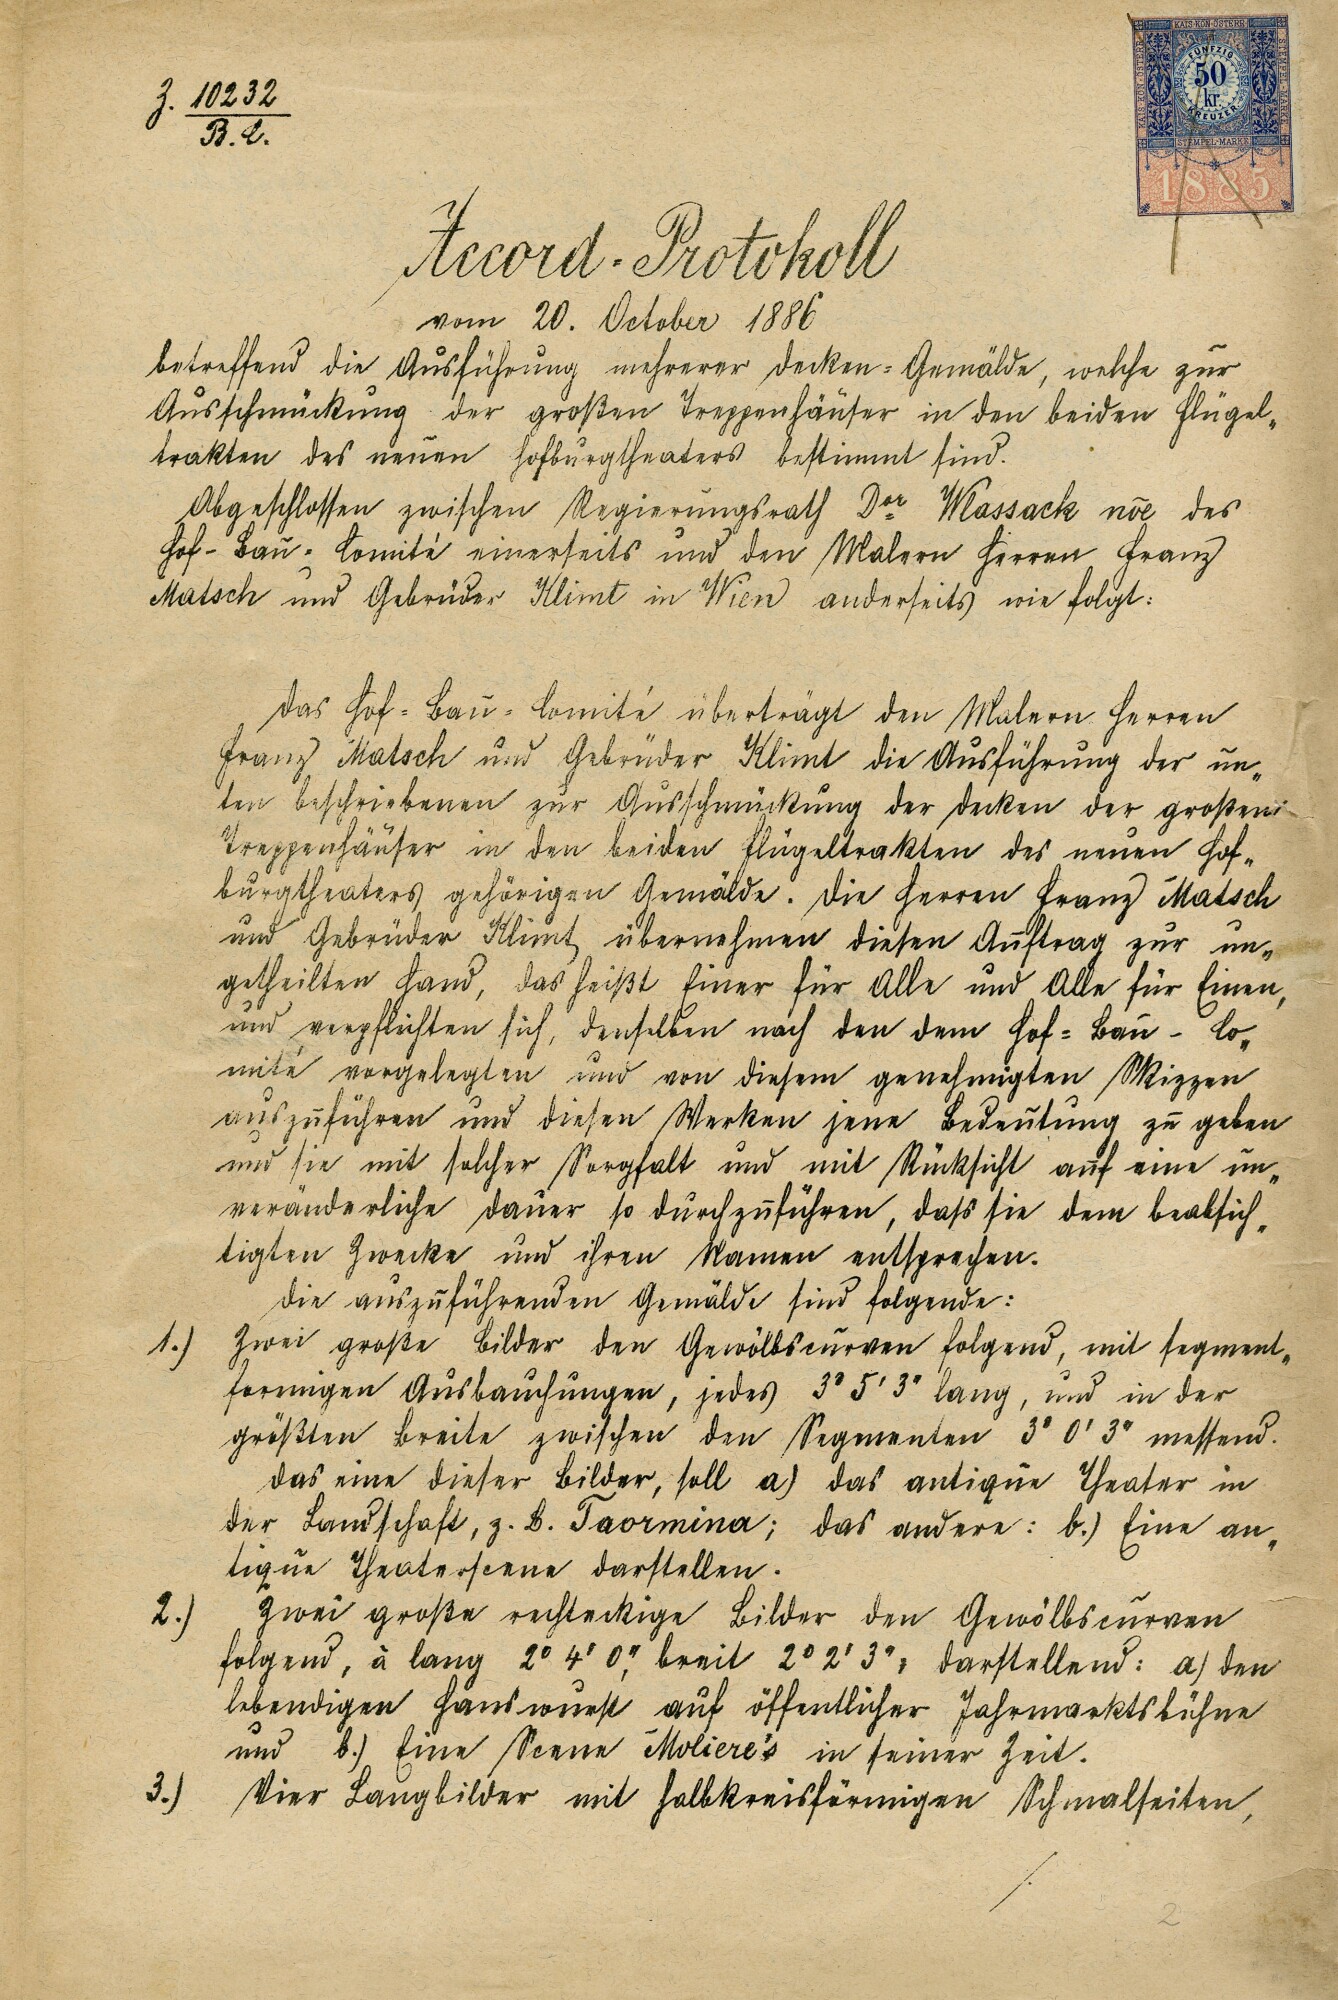 Z. 10232
B. C.
KAIS·KÖN·ÖSTERR·
STEMPEL-MARKE
FÜNFZIG
50
kr.
KREUZER
STEMPEL-MARKE
1885
Accord-Protokoll
vom 20. October 1886
betreffend die Ausführung mehrerer Decken-Gemälde, welche zur
Ausschmückung der großen Treppenhäuser in den beiden Flügel-
trakten des neuen Hofburgtheaters bestimmt sind.
Abgeschlossen zwischen Regierungsrath Dor Wlassack nōe des
Hof-Bau-Comité einerseits und den Malern Herren Franz
Matsch und Gebrüder Klimt in Wien anderseits wie folgt:
Das Hof-Bau-Comité überträgt den Malern Herren
Franz Matsch und Gebrüder Klimt die Ausführung der un-
ten beschriebenen zur Ausschmückung der Decken der großen
Treppenhäuser in den beiden Flügeltrakten des neuen Hof-
burgtheaters gehörigen Gemälde. Die Herren Franz Matsch
und Gebrüder Klimt übernehmen diesen Auftrag zur un-
getheilten Hand, das heißt Einer für Alle und Alle für Einen,
und verpflichten sich, denselben nach den dem Hof-Bau-Co-
mité vorgelegten und von diesem genehmigten Skizzen
auszuführen und diesen Werken jene Bedeutung zu geben
und sie mit solcher Sorgfalt und mit Rücksicht auf eine un-
veränderliche Dauer so durchzuführen, dass sie dem beabsich-
tigten Zwecke und ihren Namen entsprechen.
Die auszuführenden Gemälde sind folgende:
1.) Zwei große Bilder den Gewölbscurven folgend, mit segment-
formigen Ausbauchungen, jedes 3° 5' 3" lang, und in der
größten Breite zwischen den Segmenten 3° 0' 3" messend.
Das eine dieser Bilder, soll a) das antique Theater in
der Landschaft, z. B. Taormina; das andere: b.) Eine an-
tique Theaterscene darstellen.
2.) Zwei große rechteckige Bilder den Gewölbscurven
folgend, à lang 2° 4' 0", breit 2° 2' 3"; darstellend: a) den
lebendigen Hanswurst auf öffentlicher Jahrmarktsbühne
und b.) Eine Scene Moliere's in seiner Zeit.
3.) Vier Langbilder mit halbkreisförmigen Schmalseiten,
./.
2